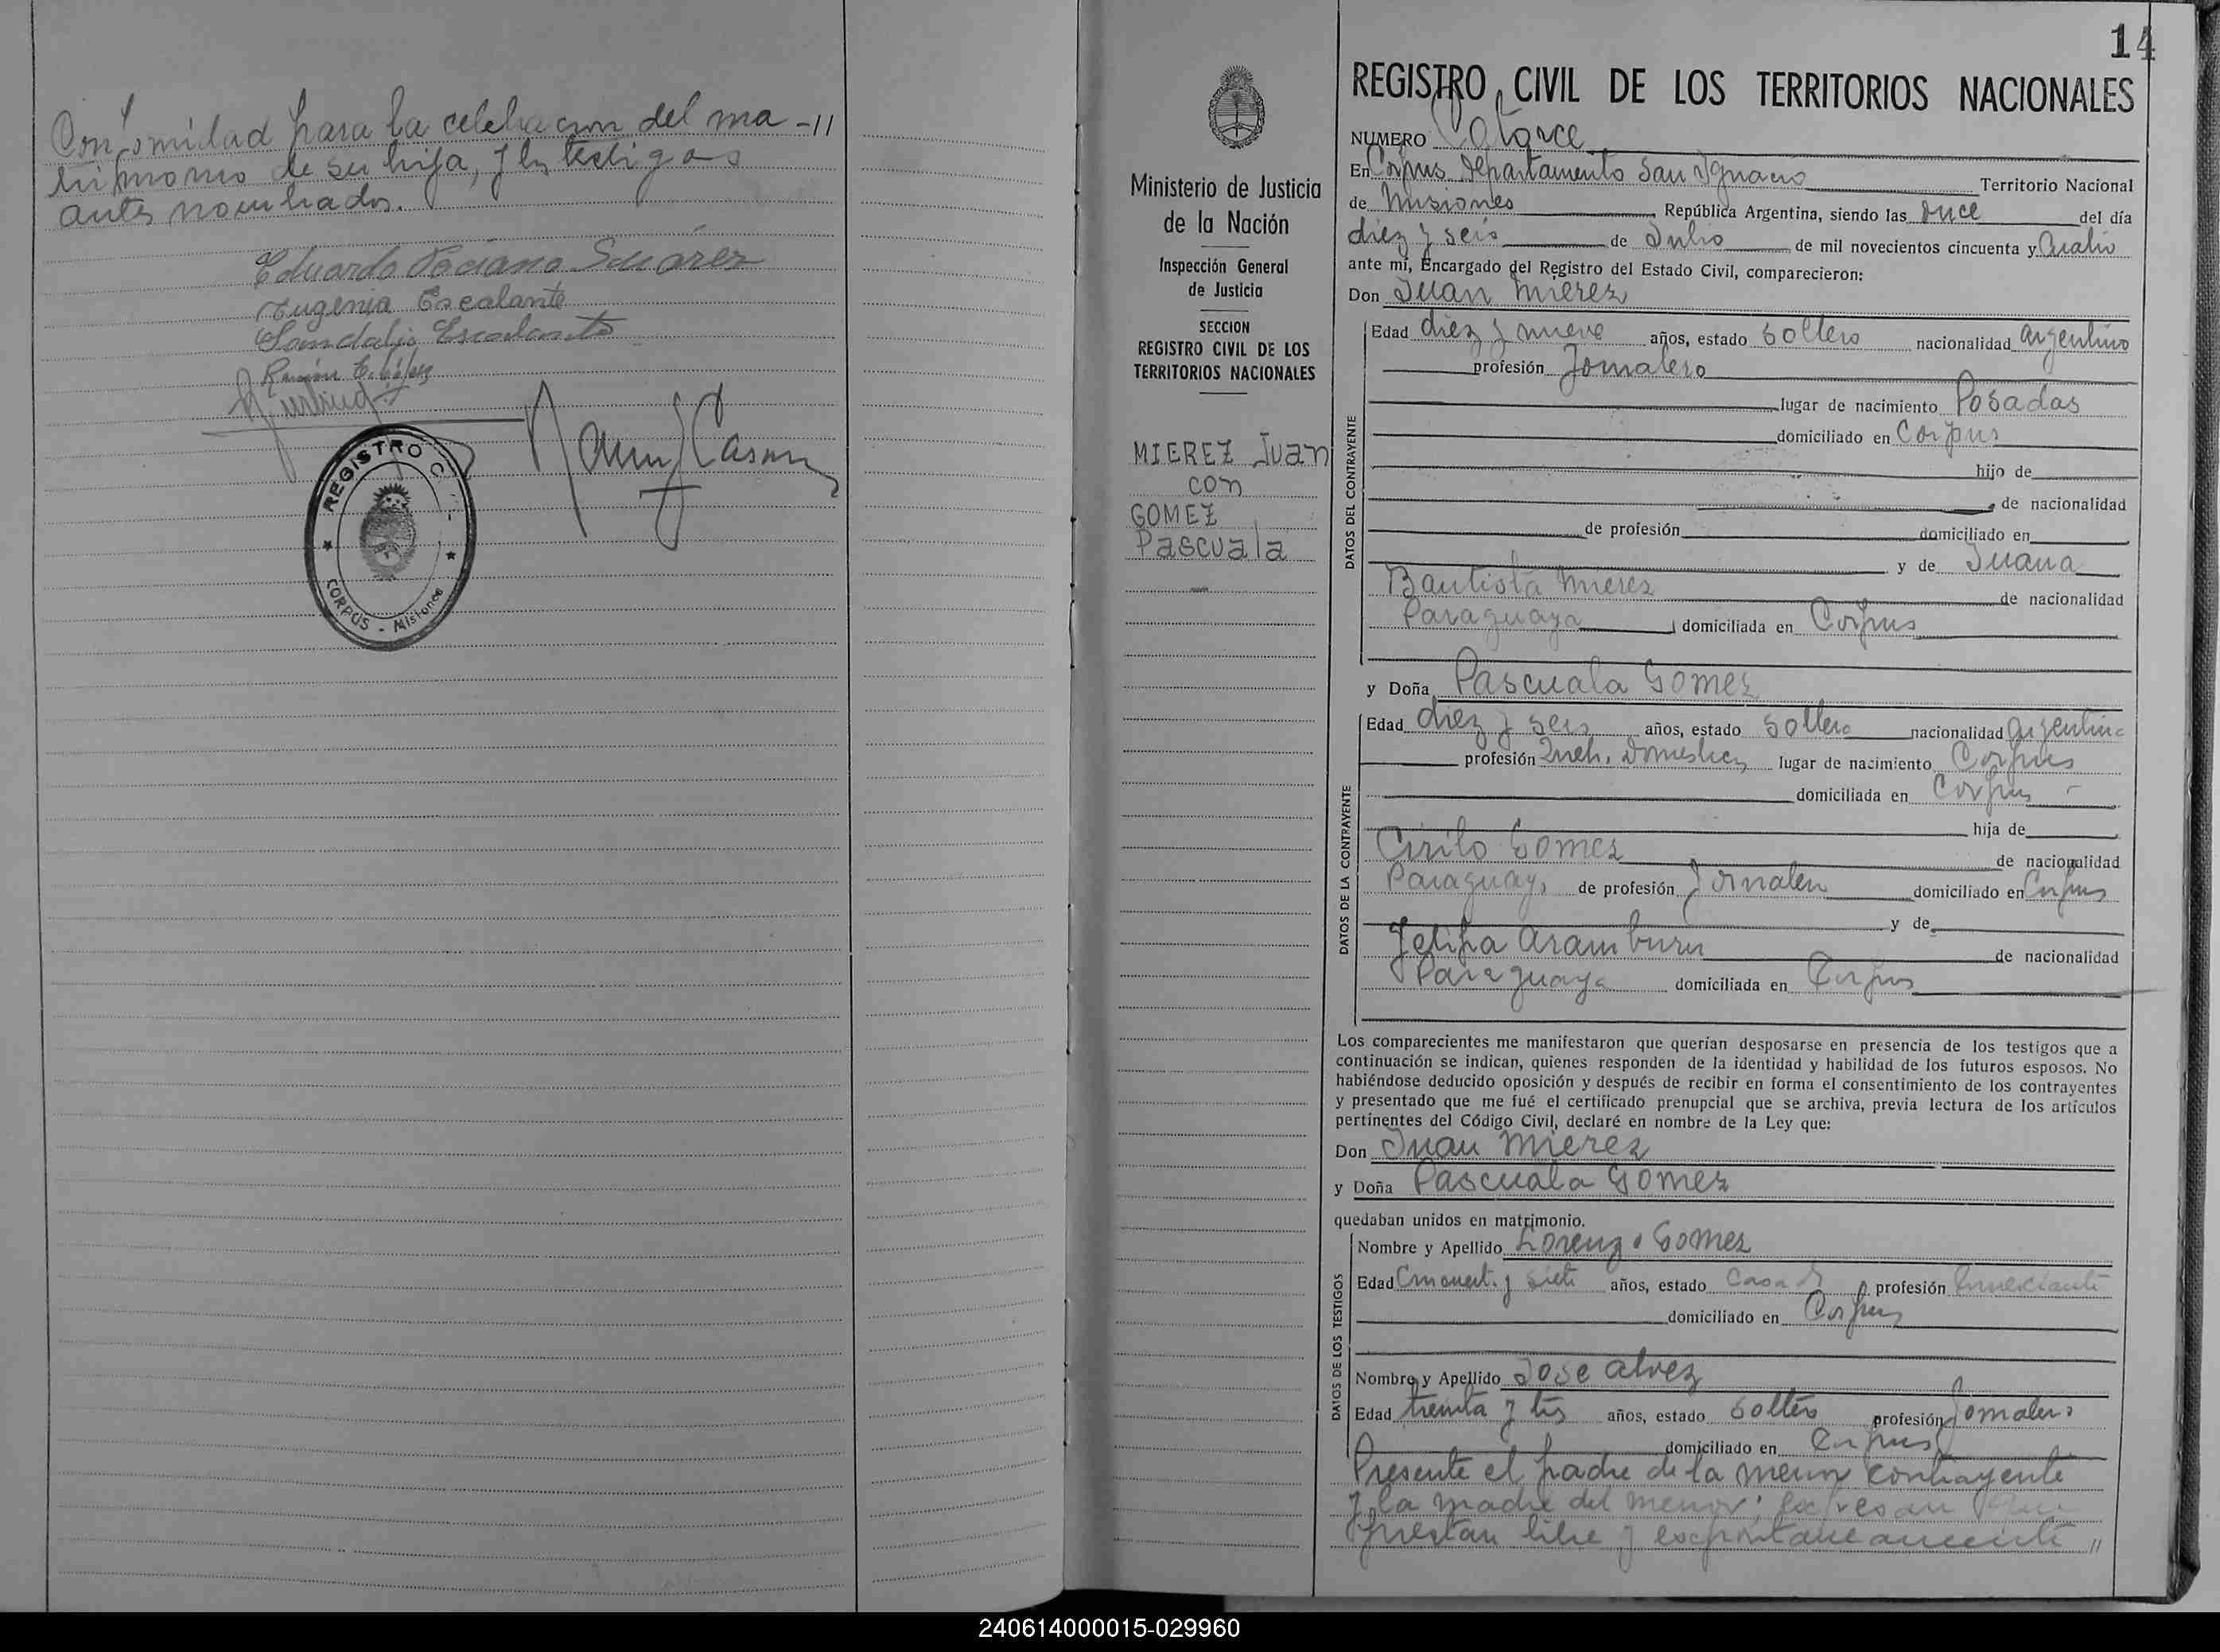 Conformidad para la celebracion del ma -11
trimonio de su hija, y los testigos
antes nombrados.
Eduardo Ponciano Suárez
Eugenia Escalante
Sandalio Escalante
Ramón E. López
REGISTRO CIVIL
CORPUS - Misiones
14
Ministerio de Justicia
de la Nación
Inspección General
de Justicia
SECCION
REGISTRO CIVIL DE LOS
TERRITORIOS NACIONALES
MIEREZ Juan
con
GOMEZ
Pascuala
REGISTRO CIVIL DE LOS TERRITORIOS NACIONALES
NUMERO Catorce
En Corpus Departamento San Ignacio Territorio Nacional
de Misiones República Argentina, siendo las once del día
diez y seis de Julio de mil novecientos cincuenta y cuatro
ante mí, Encargado del Registro del Estado Civil, comparecieron:
Don Juan Mierez
DATOS DEL CONTRAYENTE
Edad diez y nueve años, estado soltero nacionalidad argentino
profesión Jornalero
lugar de nacimiento Posadas
domiciliado en Corpus
hijo de
de nacionalidad
de profesión domiciliado en
y de Juana
Bautista Mierez de nacionalidad
Paraguaya domiciliada en Corpus
y Doña Pascuala Gomez
DATOS DE LA CONTRAYENTE
Edad diez y seis años, estado soltera nacionalidad argentina
profesión Queh. Domesticos lugar de nacimiento Corpus
domiciliada en Corpus
hija de
Cirilo Gomez de nacionalidad
Paraguayo de profesión Jornalero domiciliado en Corpus
y de
Felipa Aramburu de nacionalidad
Paraguaya domiciliada en Corpus
Los comparecientes me manifestaron que querían desposarse en presencia de los testigos que a
continuación se indican, quienes responden de la identidad y habilidad de los futuros esposos. No
habiéndose deducido oposición y después de recibir en forma el consentimiento de los contrayentes
y presentado que me fué el certificado prenupcial que se archiva, previa lectura de los artículos
pertinentes del Código Civil, declaré en nombre de la Ley que:
Don Juan Mierez
y Doña Pascuala Gomez
quedaban unidos en matrimonio.
DATOS DE LOS TESTIGOS
Nombre y Apellido Lorenzo Gomez
Edad Cincuenta y siete años, estado Casado profesión Comerciante
domiciliado en Corpus
Nombre y Apellido Jose Alvez
Edad treinta y tres años, estado soltero profesión Jornalero
domiciliado en Corpus
Presente el padre de la menor contrayente
y la madre del menor; expresan que
prestan libre y espontaneamente "
240614000015-029960